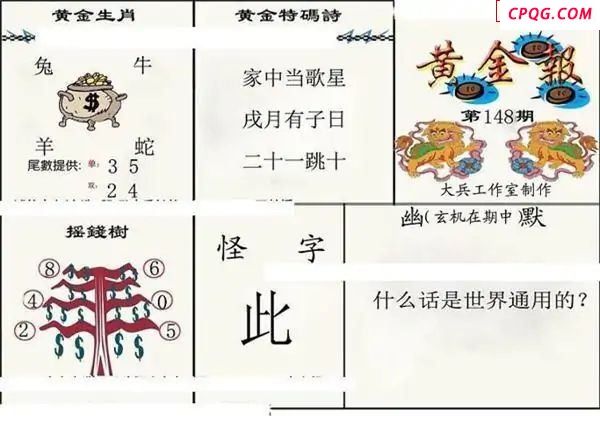 CPQG.COM
黄金生肖
兔 牛
$
羊 蛇
尾數提供: 单: 3 5
双: 2 4
黄金特碼詩
家中当歌星
戌月有子日
二十一跳十
黄金報
第148期
大兵工作室制作
摇錢樹
8 6
4 0
2 5
怪 字
此
幽(玄机在期中)默
什么话是世界通用的?